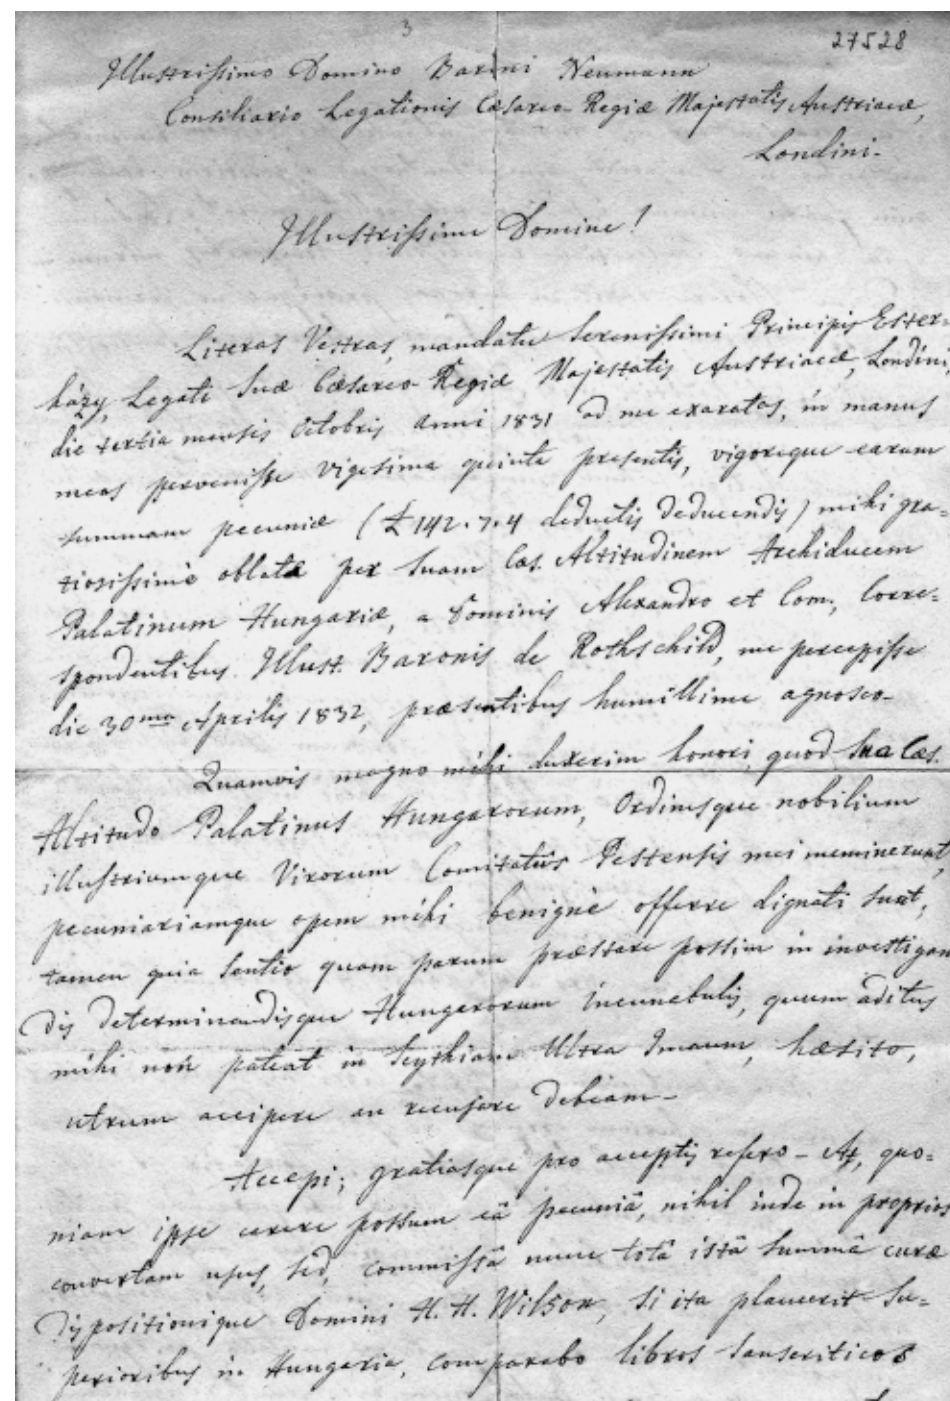 3
27528
Illustrissimo Domino Baroni Neumann
Consiliario Legationis Cæsareo-Regiæ Majestatis Austriacæ,
Londini.
Illustrissime Domine!
Literas Vestras, mandatu Serenissimi Principis Eszter-
házy, Legati Suæ Cæsareo-Regiæ Majestatis Austriacæ, Londini,
die tertia mensis Octobris anni 1831 ad me exaratas, in manus
meas pervenisse vigesima quinta præsentis, vigoreque earum
summam pecuniæ (£142.7.4 deductis deducendis) mihi gra-
tiosissimè oblatæ per Suam Cæs. Altitudinem Archiducem
Palatinum Hungariæ, a Dominis Alexandro et Com., Corre-
spondentibus Illust. Baronis de Rothschild, me percepisse
die 30ma Aprilis 1832, præsentibus humillime agnosco-
Quamvis magno mihi duxerim honori, quod Sua Cæs.
Altitudo Palatinus Hungarorum, Ordinesque nobilium
illustriumque Virorum Comitatûs Pestensis mei meminerunt,
pecuniariamque opem mihi benignè offerre dignati sunt,
tamen quia sentio quam parum præstare possim in investigan
dis determinandisque Hungarorum incunabulis, quum aditus
mihi non pateat in Scythiam Ultra Imaum, hæsito,
utrum accipere an recusare debeam-
Accepi; gratiasque pro acceptis refero - At, quo-
niam ipse carere possum eâ pecuniâ, nihil inde in proprios
convertam usus, sed, commissâ nunc totâ istâ summâ curæ
dispositionique Domini H. H. Wilson, si ita placuerit Su-
perioribus in Hungaria, comparabo libros Sanscriticos